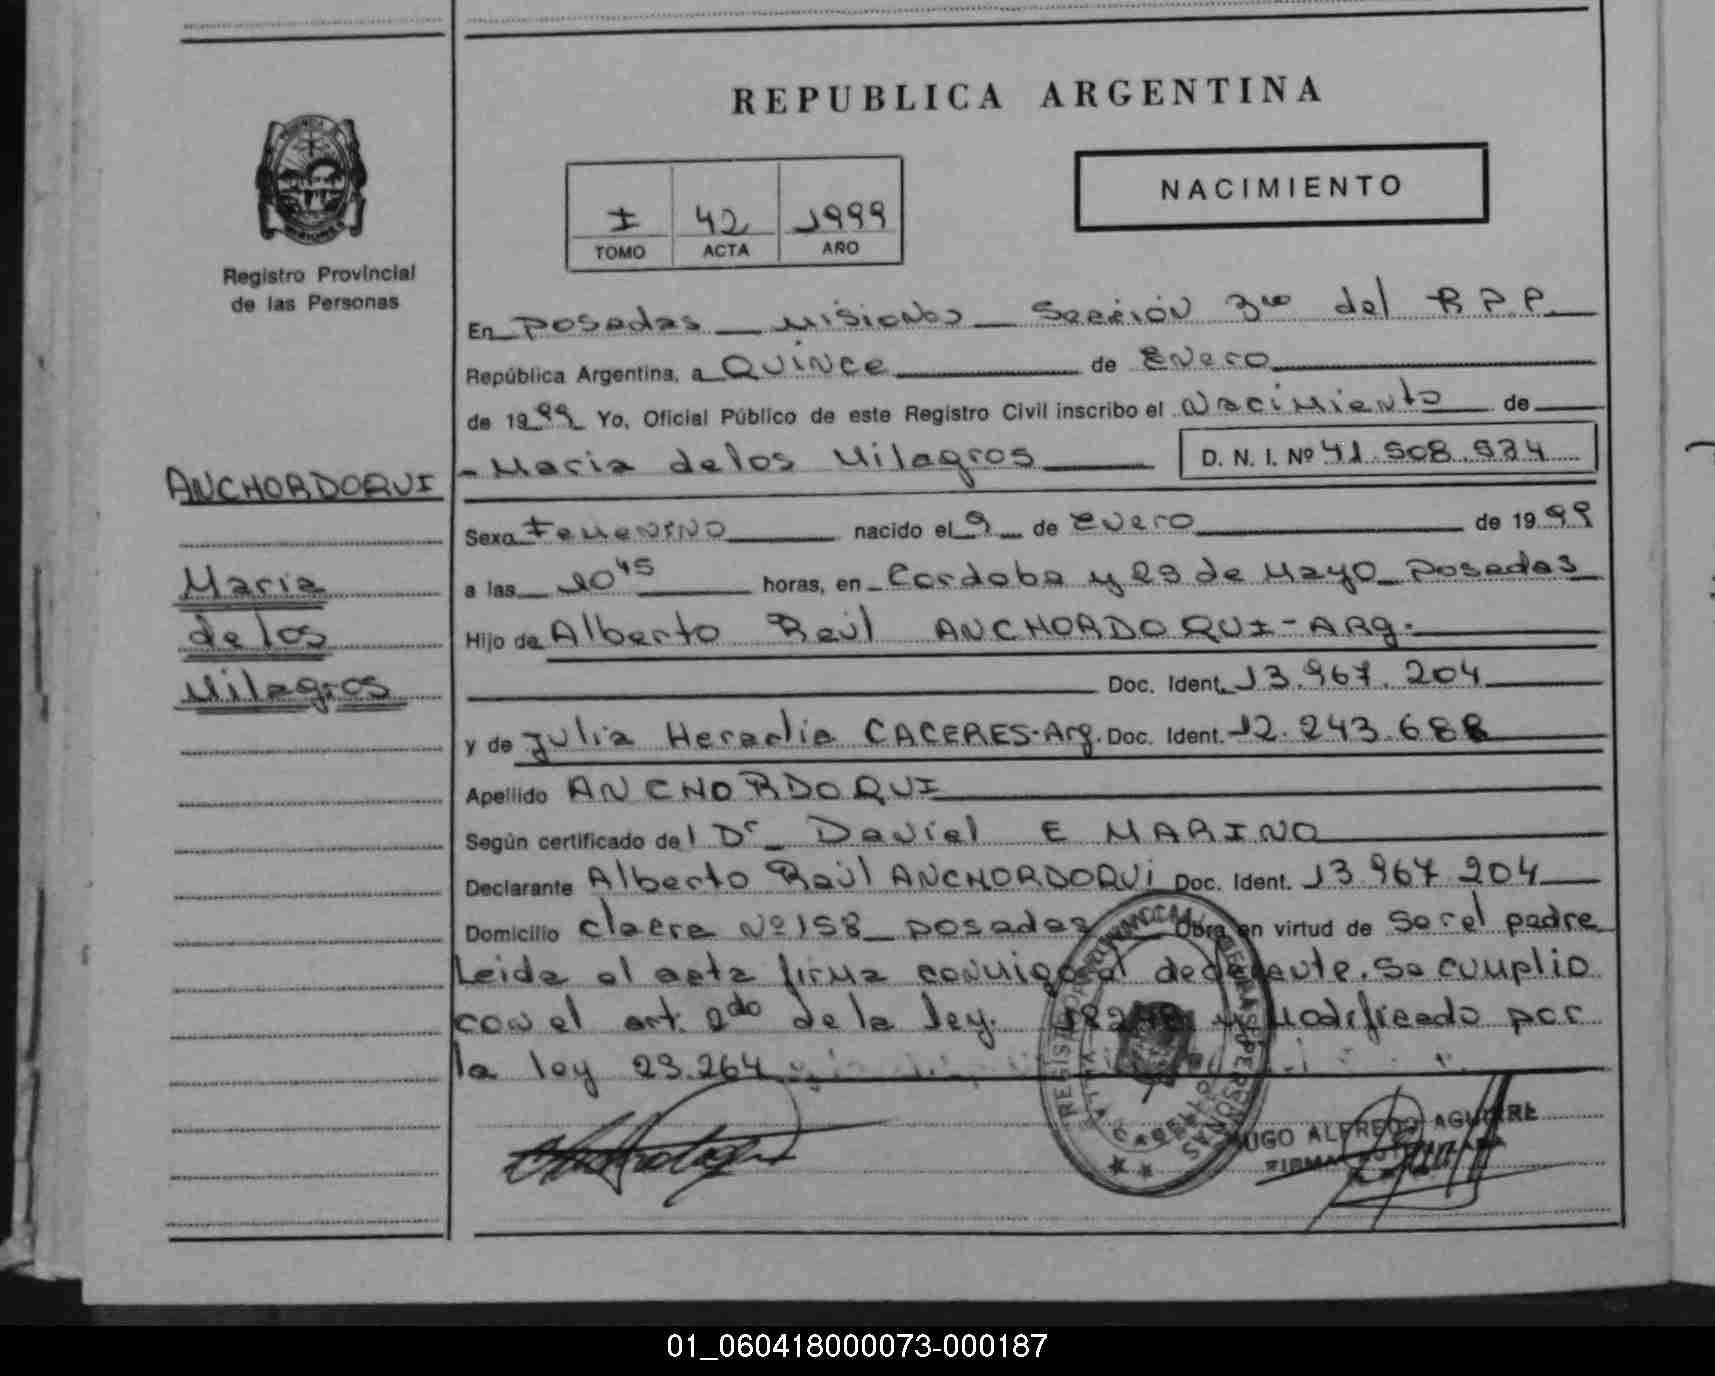 REPUBLICA ARGENTINA
NACIMIENTO
I 42 1999
TOMO ACTA AÑO
Registro Provincial
de las Personas
En Posadas Misiones Sección 3ra del R.P.P.
República Argentina, a Quince de Enero
de 1999 Yo, Oficial Público de este Registro Civil inscribo el Nacimiento de
Maria de los Milagros D. N. I. Nº 41.508.
ANCHORDOQUI
Maria
de los
Milagros
Sexo Femenino nacido el 9 de Enero de 1999
a las 10 45 horas, en Cordoba y 25 de Mayo Posadas
Hijo de Alberto Raúl ANCHORDOQUI-ARg.
Doc. Ident. 13.967.204
y de Julia Heraclia CACERES-Arg. Doc. Ident. 12.243.688
Apellido ANCHORDOQUI
Según certificado del Dr Daniel E MARINO
Declarante Alberto Raúl ANCHORDOQUI Doc. Ident. 13.967.204
Domicilio Nº 158 Posadas Obra en virtud de Ser el padre
Leida el acta firma conmigo el declarante. Se cumplio
con el art. 2do de la ley. 18248 y Modificado por
la ley 23.264
REGISTRO PROVINCIAL DE LAS PERSONAS
VILLA CABELLO
HUGO ALFREDO AGUIRRE
FIRMA
01_060418000073-000187